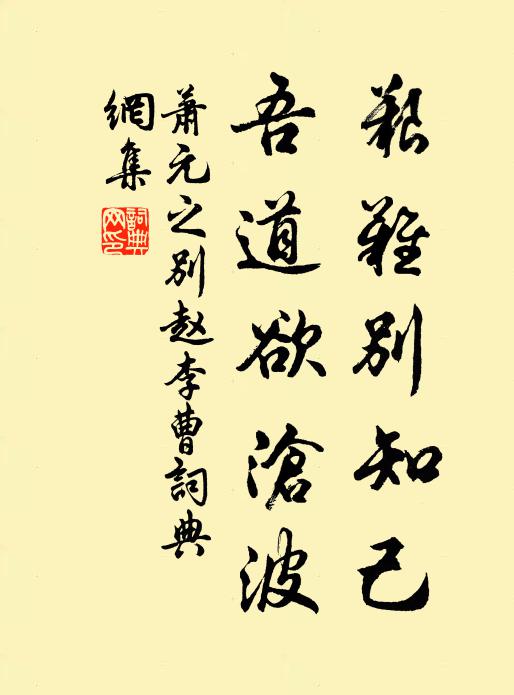 艱難別知己
吾道欲滄波
蕭元之別赵李曹詞典
網集
詞典
网印